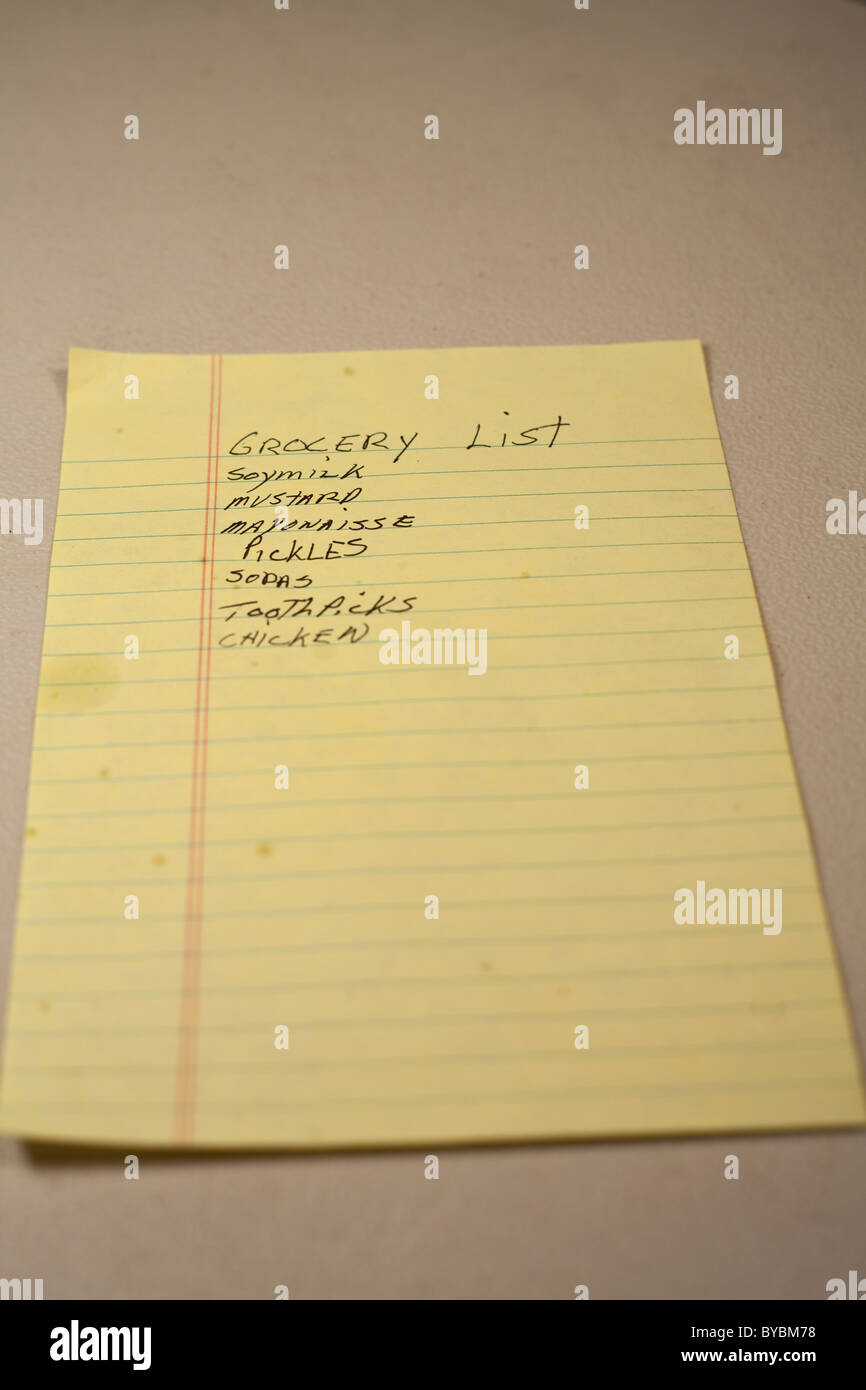 GROCERY LiST
SOYMILK
MUSTARD
MAYONAISSE
PiCKLES
SODAS
TOOTHPiCKS
CHICKEN
a
alamy
alamy
Image ID: BYBM78
www.alamy.com